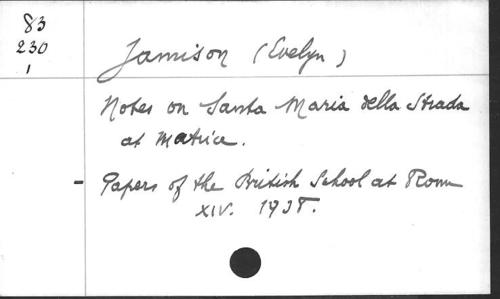 83
230
1
Jamison (Evelyn)
Notes on Santa Maria della Strada
at Matrice.
- Papers of the British School at Rome
XIV. 1938.